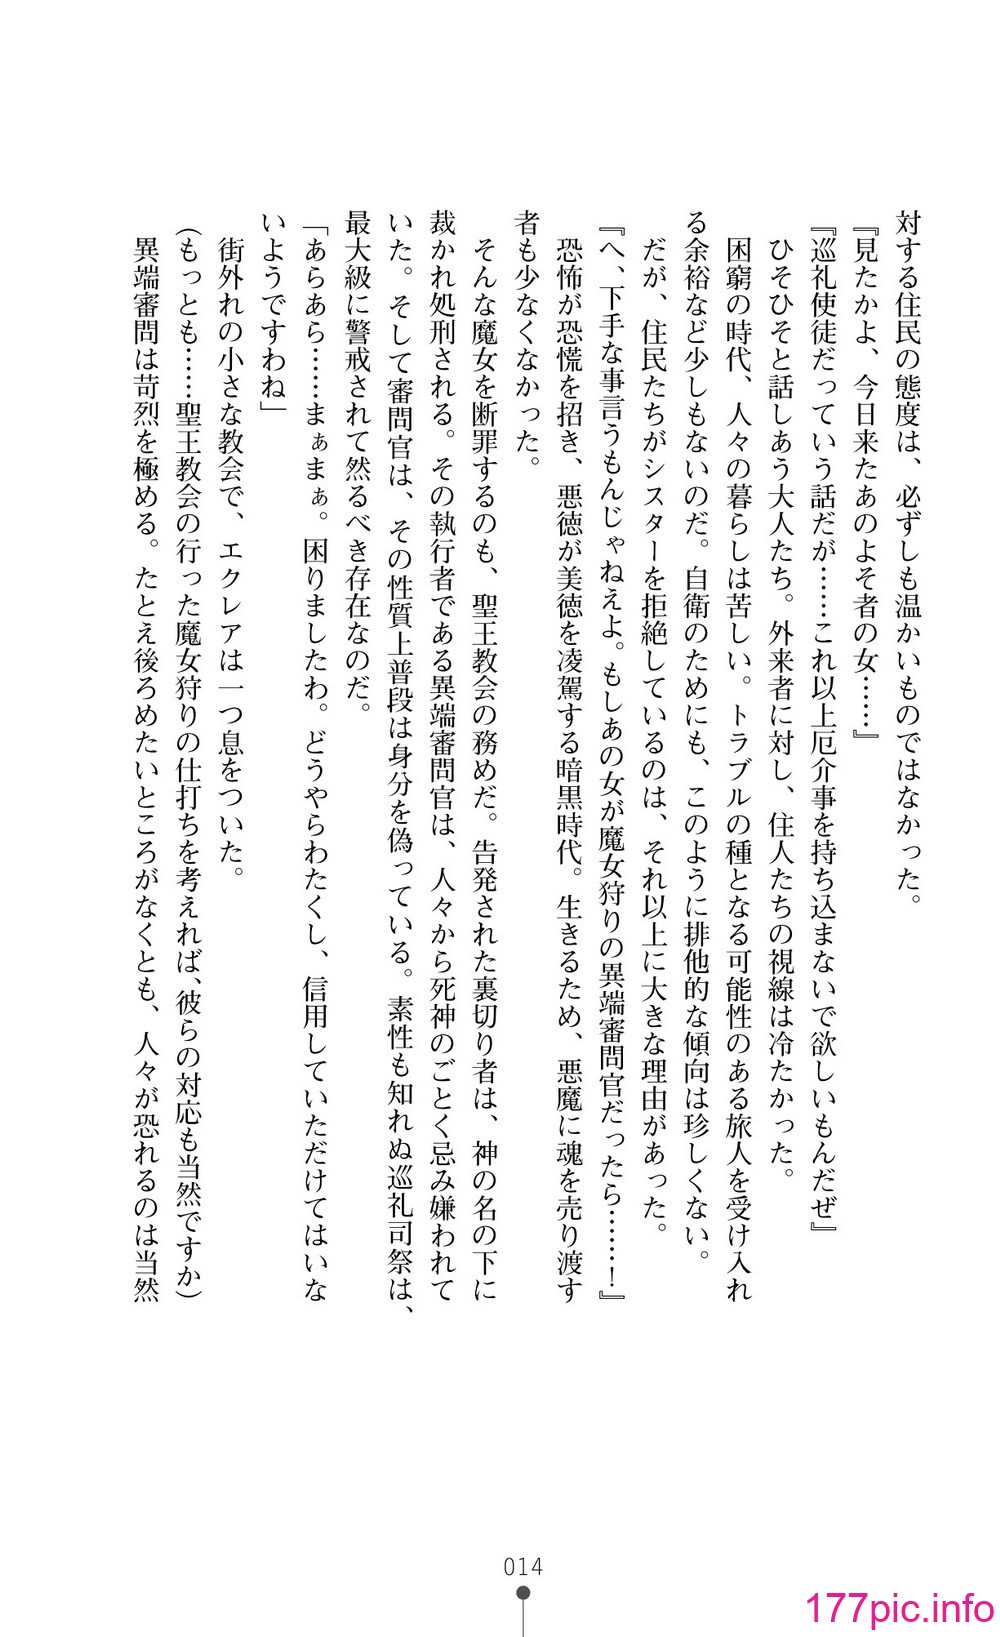 対する住民の態度は、必ずしも温かいものではなかった。
『見たかよ、今日来たあのよそ者の女……』
『巡礼使徒だっていう話だが……これ以上厄介事を持ち込まないで欲しいもんだぜ』
ひそひそと話しあう大人たち。外来者に対し、住人たちの視線は冷たかった。
困窮の時代、人々の暮らしは苦しい。トラブルの種となる可能性のある旅人を受け入れ
る余裕など少しもないのだ。自衛のためにも、このように排他的な傾向は珍しくない。
だが、住民たちがシスターを拒絶しているのは、それ以上に大きな理由があった。
『へ、下手な事言うもんじゃねえよ。もしあの女が魔女狩りの異端審問官だったら……！』
恐怖が恐慌を招き、悪徳が美徳を凌駕する暗黒時代。生きるため、悪魔に魂を売り渡す
者も少なくなかった。
そんな魔女を断罪するのも、聖王教会の務めだ。告発された裏切り者は、神の名の下に
裁かれ処刑される。その執行者である異端審問官は、人々から死神のごとく忌み嫌われて
いた。そして審問官は、その性質上普段は身分を偽っている。素性も知れぬ巡礼司祭は、
最大級に警戒されて然るべき存在なのだ。
「あらあら……まぁまぁ。困りましたわ。どうやらわたくし、信用していただけてはいな
いようですわね」
街外れの小さな教会で、エクレアは一つ息をついた。
（もっとも……聖王教会の行った魔女狩りの仕打ちを考えれば、彼らの対応も当然ですか）
異端審問は苛烈を極める。たとえ後ろめたいところがなくとも、人々が恐れるのは当然
014
177pic.info